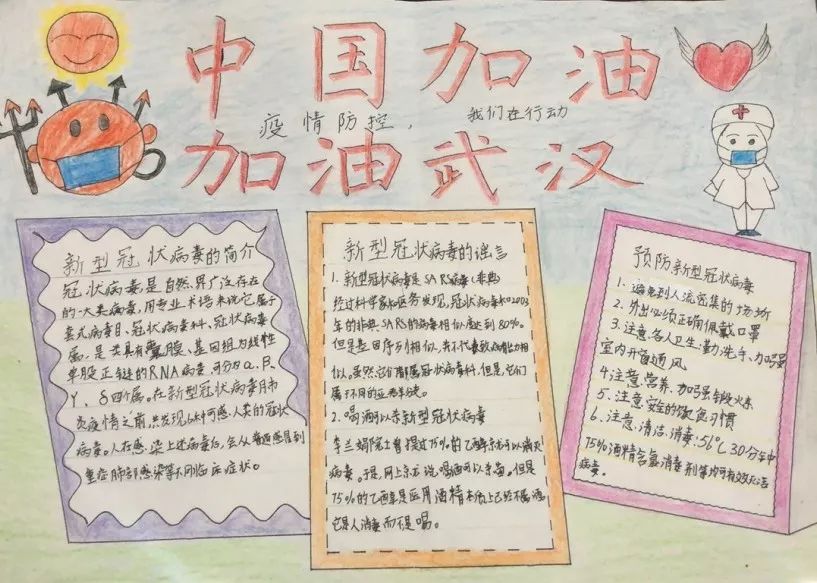 中国加油
疫情防控,
我们在行动
加油武汉
新型冠状病毒的简介
冠状病毒是自然界广泛存在
的一大类病毒,用专业术语来说它属于
套式病毒目、冠状病毒科、冠状病毒
属,是一类具有囊膜、基因组为线性
单股正链的RNA病毒,可分为α、β、
γ、δ四个属。在新型冠状病毒肺
炎疫情之前,共发现6种可感人类的冠状
病毒。人在感染上述病毒后,会从普通感冒到
重症肺部感染等不同临床症状。
新型冠状病毒的谣言
1.新型冠状病毒是SARS病毒(非典)
经过科学家和医务发现,冠状病毒和2003
年的非典SARS的病毒相似度达到80%。
但是基因序列相似,并不代表致病能力相
似。虽然它们都属冠状病毒科,但是,它们
属于不同的亚类
2.喝酒可以杀新型冠状病毒
李兰娟院士曾提过75%的乙醇
病毒。于是,网上说喝酒可以杀毒。但是
75%的乙醇是医用酒精本质上已经不属酒
它是人消毒而不是喝。
预防新型冠状病毒
1、避免到人流密集的场所
2、外出必须正确佩戴口罩
3.注意个人卫生:勤洗手、加强
室内开窗通风
4注意营养,加强锻炼
5、注意安全的饮食习惯
6、注意清洁消毒:56℃30分钟
75%酒精含氯消毒剂等均可有效灭活
病毒。